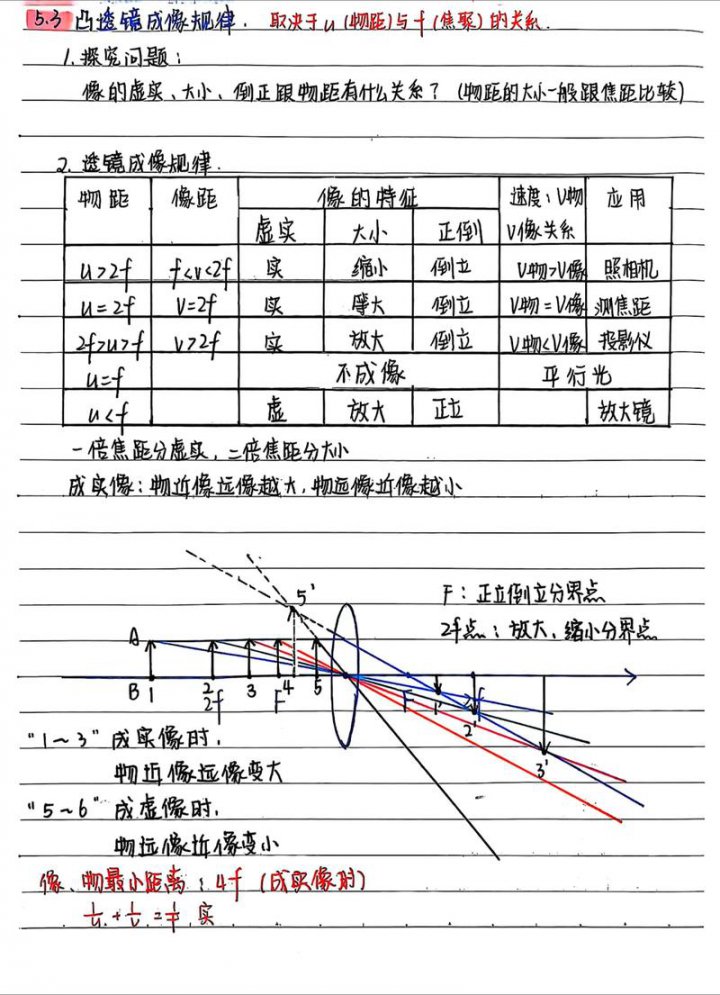 5.3 凸透镜成像规律. 取决于u(物距)与f(焦聚)的关系.
1.探究问题:
像的虚实、大小、倒正跟物距有什么关系?(物距的大小一般跟焦距比较)
2.透镜成像规律.
物距 像距 像的特征 速度:V物V像关系 应用
虚实 大小 正倒
u>2f f<v<2f 实 缩小 倒立 V物>V像 照相机
u=2f v=2f 实 大 倒立 V物=V像 测焦距
2f>u>f v>2f 实 放大 倒立 V物<V像 投影仪
u=f 不成像 平行光
u<f 虚 放大 正立 放大镜
一倍焦距分虚实,二倍焦距分大小
成实像:物近像远像越大,物远像近像越小
5'
F:正立倒立分界点
2f点:放大、缩小分界点
A
B 1 2 3 4 5
2f F F 1' 2f
2'
3'
"1~3"成实像时,
物近像远像变大
"5~6"成虚像时,
物远像近像变小
像、物最小距离:4f (成实像时)
1/u+1/v=1/f 实